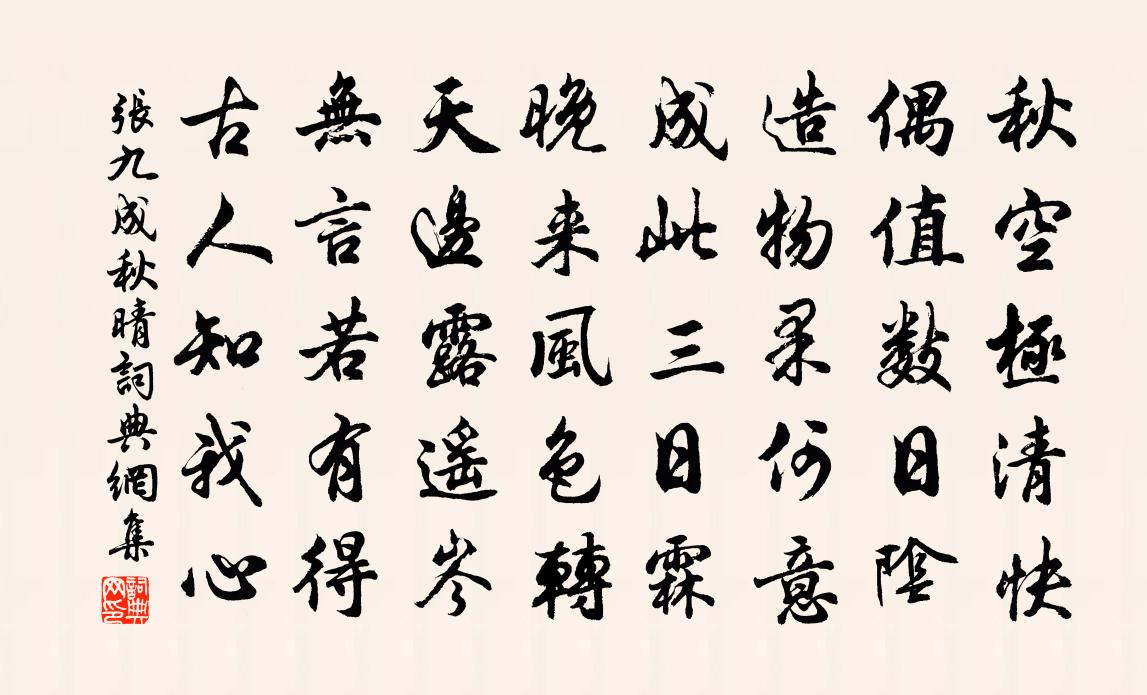 秋空極清快
偶值數日陰
造物果何意
成此三日霖
晚来風色轉
天邊露遥岑
無言若有得
古人知我心
張九成秋晴詞典網集
詞典網印